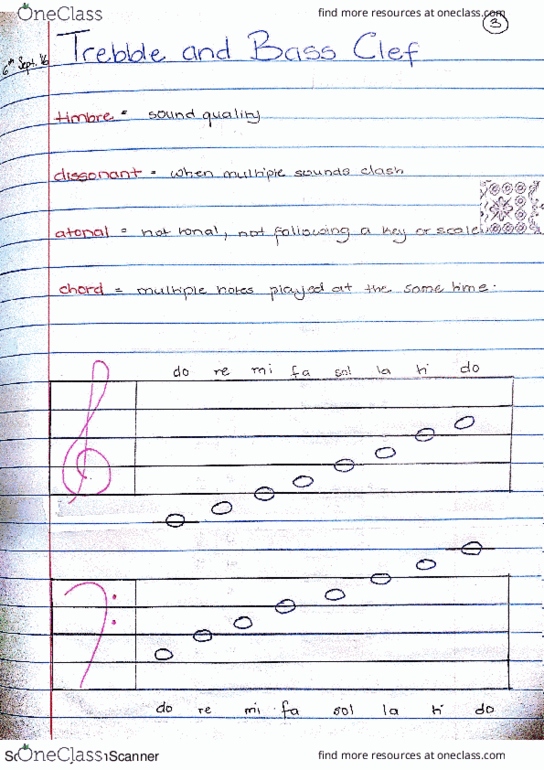 OneClass find more resources at oneclass.com
3
6th Sept. 16 Trebble and Bass Clef
timbre = sound quality
dissonant = when multiple sounds clash
atonal = not tonal, not following a key or scale.
chord = multiple notes played at the same time.
do re mi fa sol la ti do
do re mi fa sol la ti do
OneClass Scanner find more resources at oneclass.com